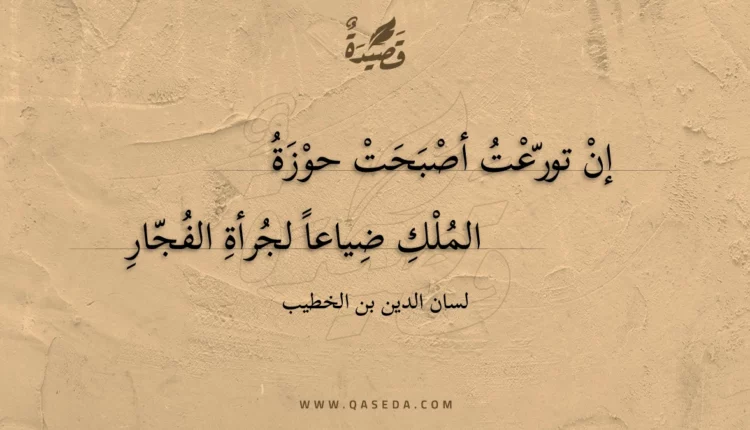 قَصِيدَةٌ
إنْ تورّعْتُ أصْبَحَتْ حوْزَةُ
المُلْكِ ضِياعاً لجُرأةِ الفُجّارِ
لسان الدين بن الخطيب
WWW.QASEDA.COM